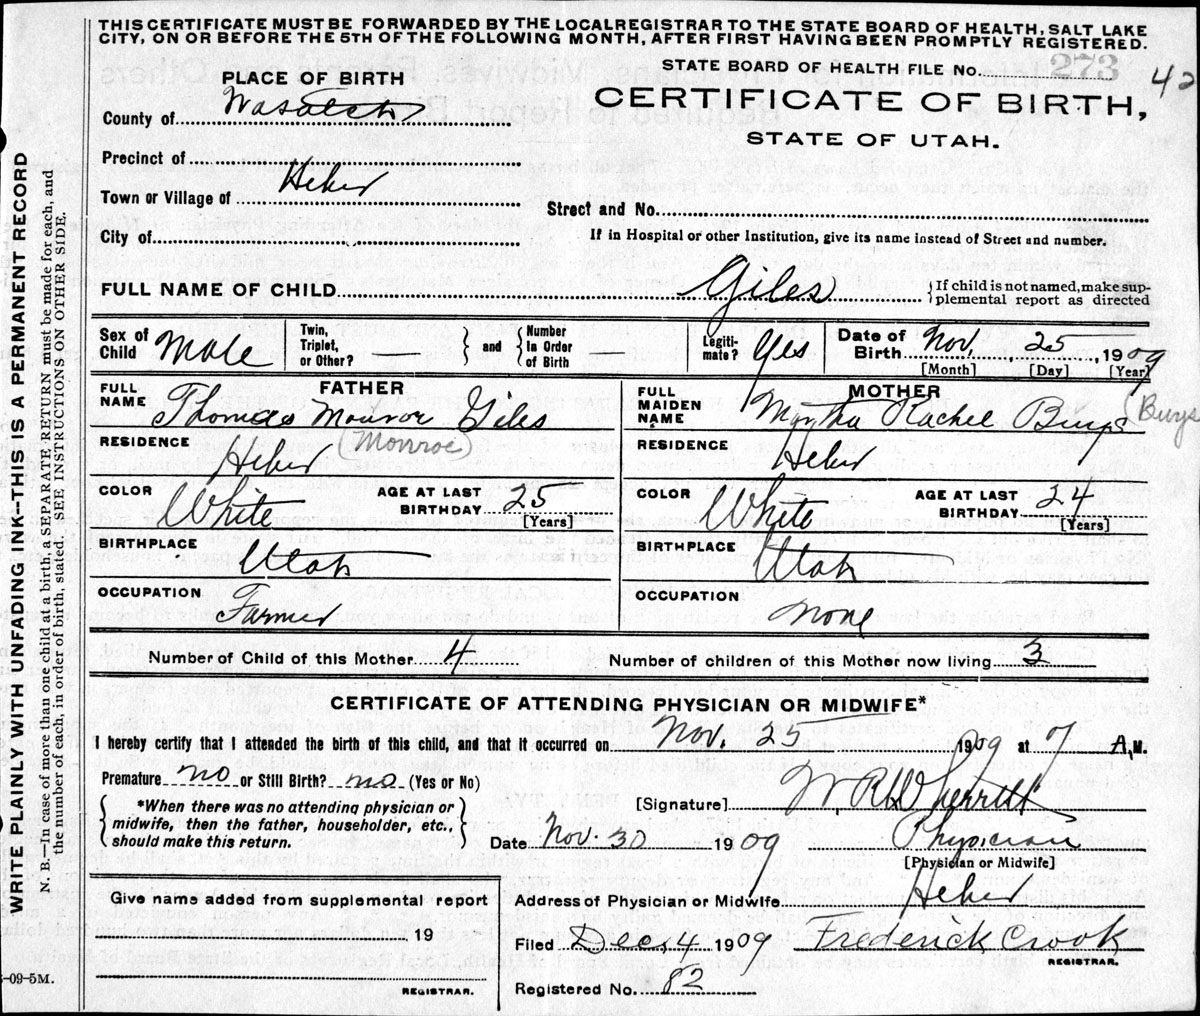 THIS CERTIFICATE MUST BE FORWARDED BY THE LOCAL REGISTRAR TO THE STATE BOARD OF HEALTH, SALT LAKE
CITY, ON OR BEFORE THE 5TH OF THE FOLLOWING MONTH, AFTER FIRST HAVING BEEN PROMPTLY REGISTERED.
STATE BOARD OF HEALTH FILE No. 273 42
PLACE OF BIRTH
CERTIFICATE OF BIRTH,
STATE OF UTAH.
County of Wasatch
Precinct of
Town or Village of Heber
Street and No.
City of
If in Hospital or other Institution, give its name instead of Street and number.
FULL NAME OF CHILD Giles {If child is not named, make sup-
plemental report as directed
Sex of Child Male Twin, Triplet, or Other? } and { Number In Order of Birth Legiti-mate? Yes Date of Birth Nov. 25 1909
[Month] [Day] [Year]
FATHER
MOTHER
FULL NAME Thomas Monror Giles
(Monroe)
FULL MAIDEN NAME Rachel Burys (Burys
RESIDENCE Heber
RESIDENCE Heber
COLOR White AGE AT LAST BIRTHDAY 25 [Years]
COLOR White AGE AT LAST BIRTHDAY 24 [Years]
BIRTHPLACE Utah
BIRTHPLACE Utah
OCCUPATION Farmer
OCCUPATION None
Number of Child of this Mother 4 Number of children of this Mother now living 3
CERTIFICATE OF ATTENDING PHYSICIAN OR MIDWIFE*
I hereby certify that I attended the birth of this child, and that it occurred on Nov. 25 1909 at 7 A.M.
Premature no or Still Birth? no (Yes or No)
{*When there was no attending physician or
midwife, then the father, householder, etc.,
should make this return.}
[Signature] W R Wherritt
Date Nov. 30 1909 Physician
[Physician or Midwife]
Give name added from supplemental report
Address of Physician or Midwife Heber
19
Filed Dec. 4 1909 Frederick Crook
REGISTRAR.
REGISTRAR.
Registered No. 82
-09-5M.
WRITE PLAINLY WITH UNFADING INK--THIS IS A PERMANENT RECORD
N. B.—In case of more than one child at a birth, a SEPARATE RETURN must be made for each, and
the number of each, in order of birth, stated. SEE INSTRUCTIONS ON OTHER SIDE.